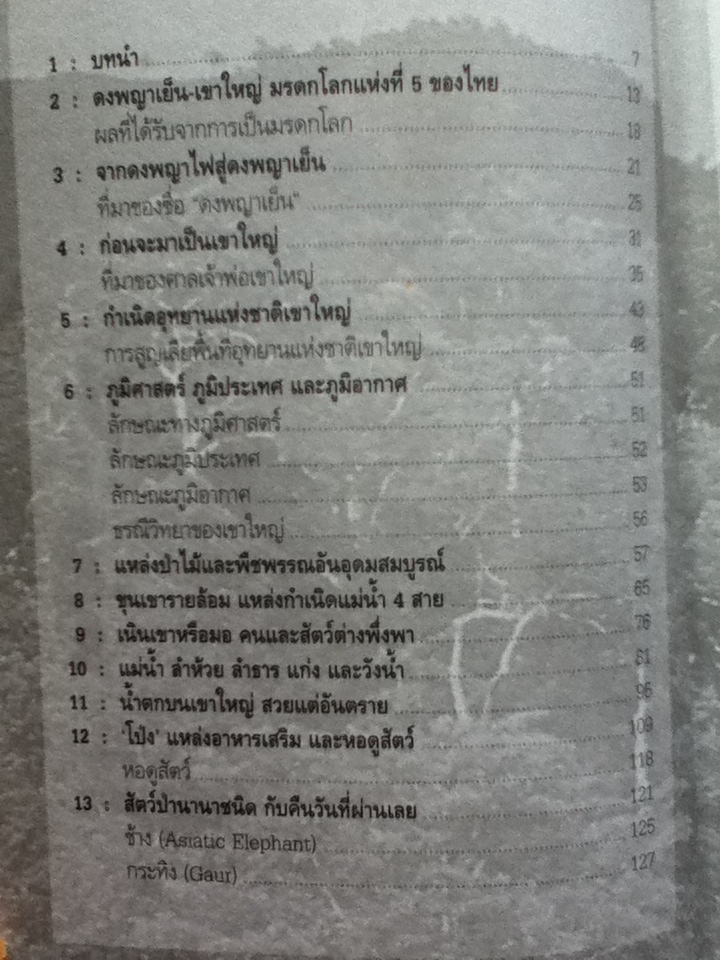 1 : บทนำ 7
2 : ดงพญาเย็น-เขาใหญ่ มรดกโลกแห่งที่ 5 ของไทย 13
ผลที่ได้รับจากการเป็นมรดกโลก 18
3 : จากดงพญาไฟสู่ดงพญาเย็น 21
ที่มาของชื่อ "ดงพญาเย็น" 25
4 : ก่อนจะมาเป็นเขาใหญ่ 31
ที่มาของศาลเจ้าพ่อเขาใหญ่ 35
5 : กำเนิดอุทยานแห่งชาติเขาใหญ่ 43
การสูญเสียพื้นที่อุทยานแห่งชาติเขาใหญ่ 48
6 : ภูมิศาสตร์ ภูมิประเทศ และภูมิอากาศ 51
ลักษณะทางภูมิศาสตร์ 51
ลักษณะภูมิประเทศ 52
ลักษณะภูมิอากาศ 53
ธรณีวิทยาของเขาใหญ่ 56
7 : แหล่งป่าไม้และพืชพรรณอันอุดมสมบูรณ์ 57
8 : ขุนเขารายล้อม แหล่งกำเนิดแม่น้ำ 4 สาย 65
9 : เนินเขาหรือมอ คนและสัตว์ต่างพึ่งพา 76
10 : แม่น้ำ ลำห้วย ลำธาร แก่ง และวังน้ำ
11 : น้ำตกบนเขาใหญ่ สวยแต่อันตราย
12 : 'โป่ง' แหล่งอาหารเสริม และหอดูสัตว์ 109
หอดูสัตว์ 118
13 : สัตว์ป่านานาชนิด กับคืนวันที่ผ่านเลย 121
ช้าง (Asiatic Elephant) 125
กระทิง (Gaur) 127